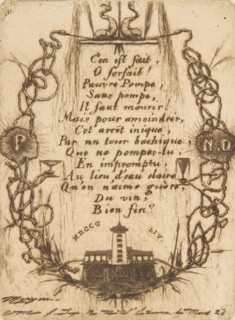 C'en est fait,
O forfait
Pauvre Pompe,
Sans pompe,
Il faut mourir.
Mais pour amoindrir,
Cet arrêt inique,
Par un tour bachique,
Que ne pompes-tu
En impromptu,
Au lieu d'eau claire,
Qu'on n'aime guère,
Du vin,
Bien fin?
P
N.D
MDCCC LIV